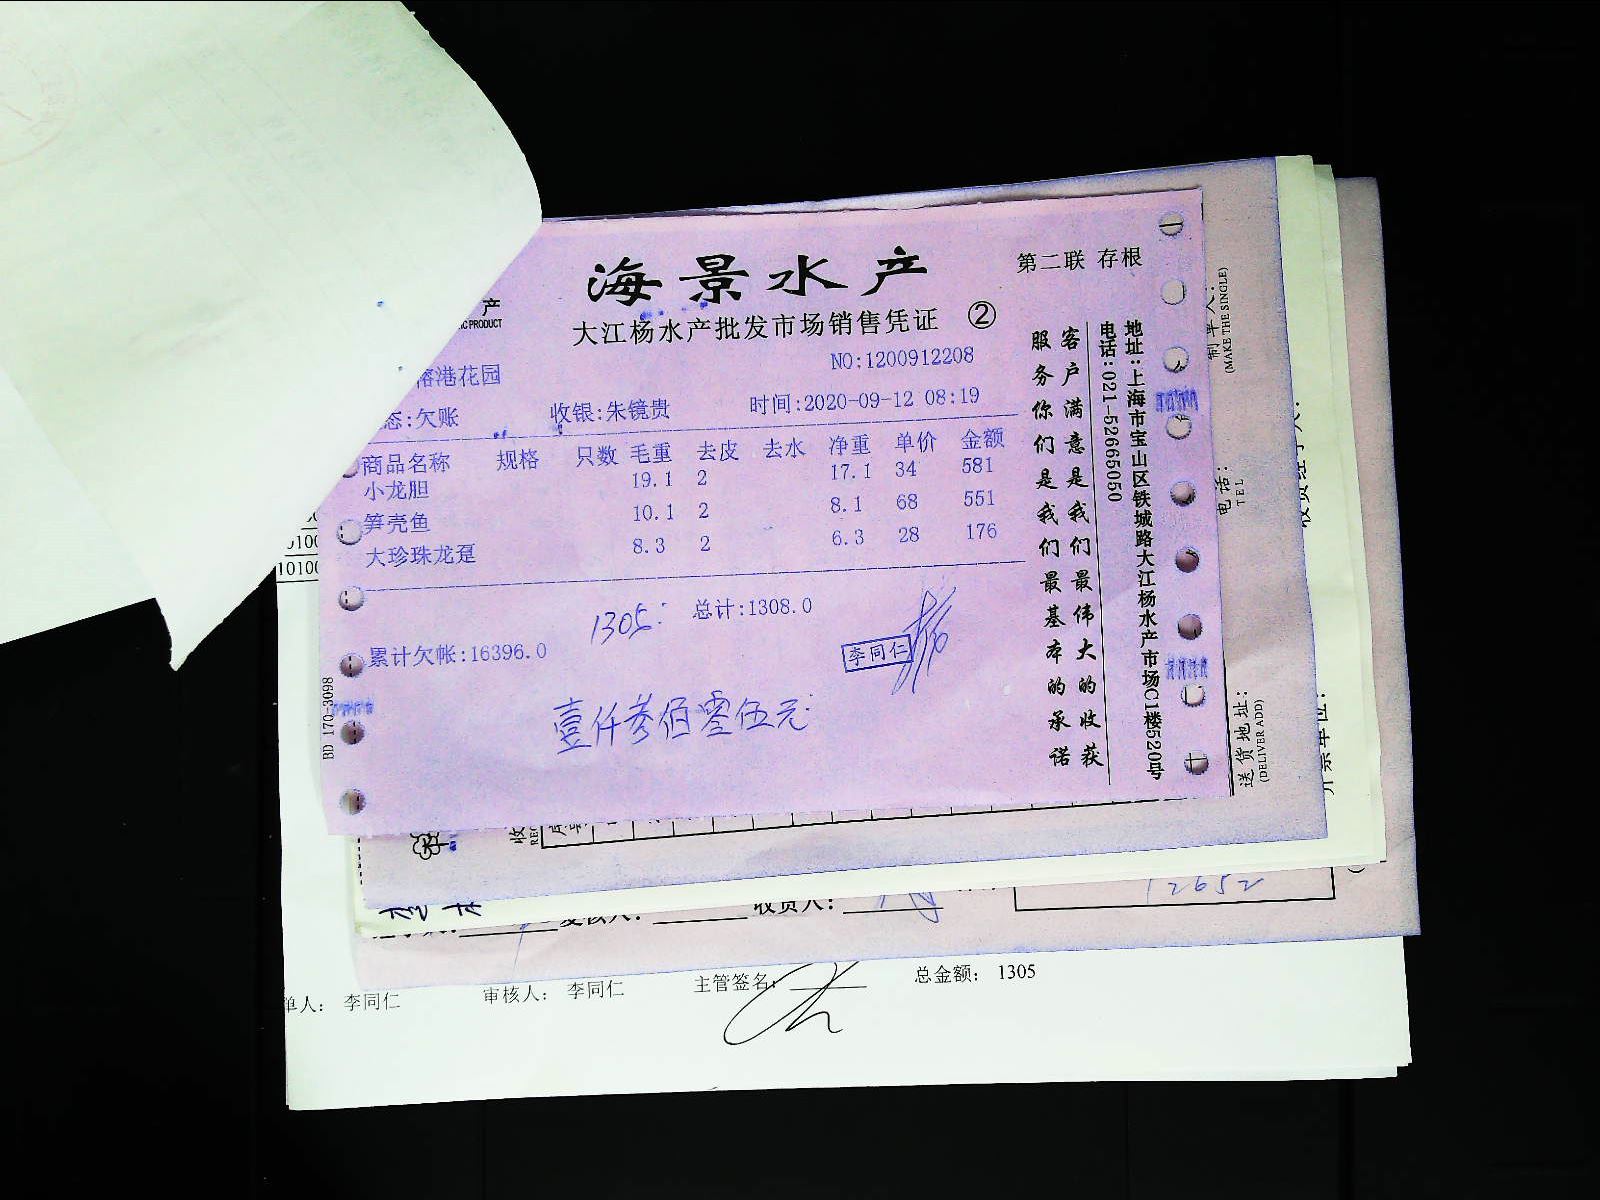 海景水产
第二联 存根
产
大江杨水产批发市场销售凭证 ②
NO:1200912208
港花园
态:欠账 收银:朱镜贵 时间:2020-09-12 08:19
商品名称 规格 只数 毛重 去皮 去水 净重 单价 金额
小龙胆 19.1 2 17.1 34 581
笋壳鱼 10.1 2 8.1 68 551
大珍珠龙趸 8.3 2 6.3 28 176
1305. 总计:1308.0
累计欠帐:16396.0
李同仁
壹仟叁佰零伍元
BD 170-3098
客户满意是我们最伟大的收获
服务你们是我们最基本的承诺
地址:上海市宝山区铁城路大江杨水产市场C1楼520号
电话:021-52665050
制单人:
(MAKE THE SINGLE)
电话:
TEL
送货地址:
(DELIVER ADD)
10100
12652
收货人:
单人: 李同仁 审核人: 李同仁 主管签名: 总金额: 1305